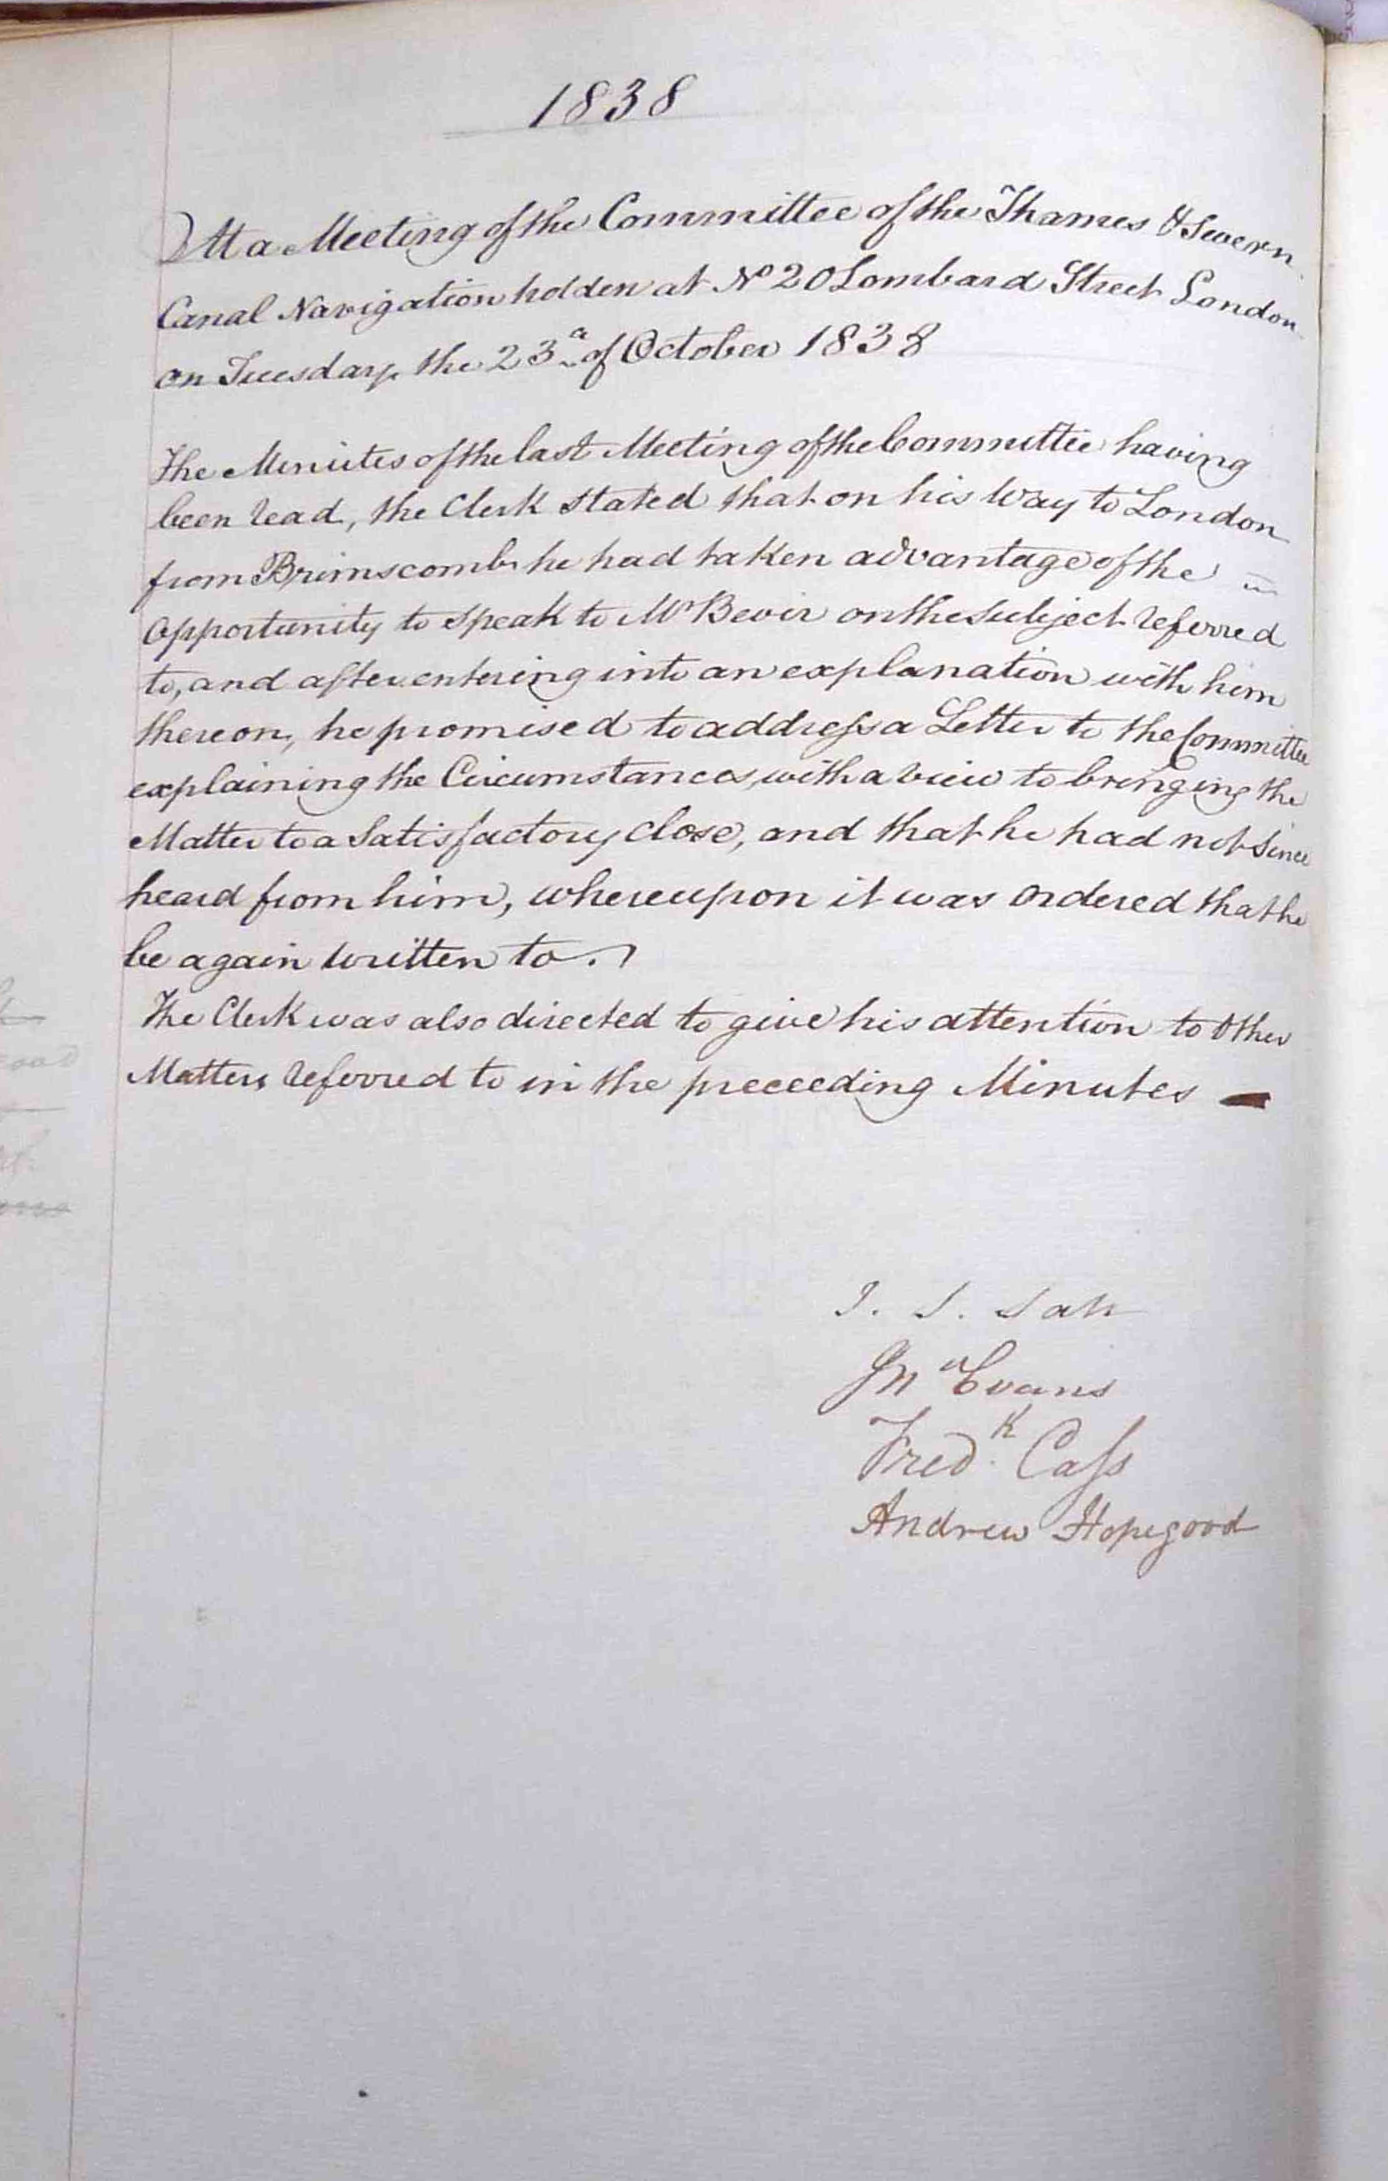 1838
At a Meeting of the Committee of the Thames & Severn
Canal Navigation holden at No 20 Lombard Street London
on Tuesday the 23d of October 1838
The Minutes of the last Meeting of the Committee having
been read, the Clerk stated that on his Way to London
from Brimscomb he had taken advantage of the
opportunity to speak to Mr Bevir on the subject referred
to, and after entering into an explanation with him
thereon, he promised to address a Letter to the Committee
explaining the Circumstances, with a view to bringing the
Matter to a Satisfactory close, and that he had not since
heard from him, whereupon it was ordered that he
be again written to.
The Clerk was also directed to give his attention to other
Matters referred to in the preceeding Minutes
J. S.
Jno Evans
Fredk Cass
Andrew Hopegood